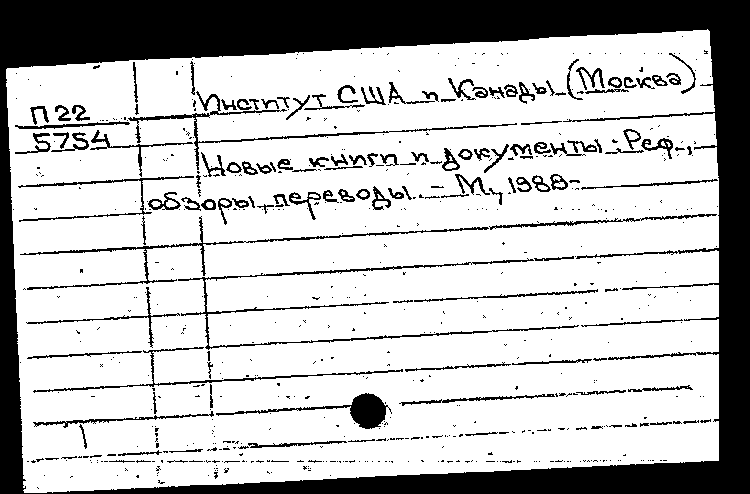 П22
5754
Институт США и Канады (Москва)
Новые книги и документы : Реф.,
обзоры, переводы. – М., 1988-